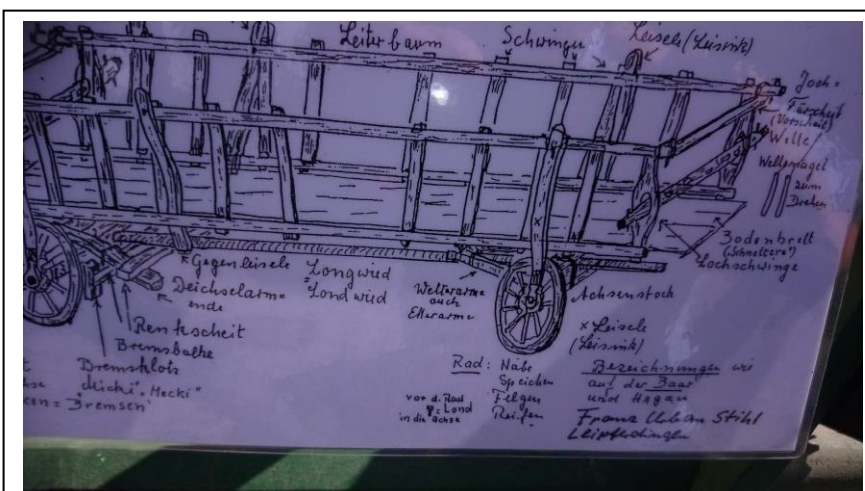 Leiterbaum
Schwinge
Leisele (Leisnik)
Joch =
Fürscheit
(Vorscheit)
Welle/
Wellennagel
zum
Drehen
Bodenbrett
(Schneltere)
Lochschwinge
Gegenleisele
Deichselarm=
ende
Longwied
=Londwied
Wellerarme
auch
Ellerarme
Achsenstock
Renkscheit
Bremsbalke
Bremsklotz
Micki "Mecki"
= Bremsen
x Leisele
(Leisnik)
Rad: Nabe
Speichen
Felgen
Reifen
vor d. Rad
= Lond
in die Achse
Bezeichnungen wie
auf der Baar
und Hegau
Franz Urban Stihl
Leipferdingen